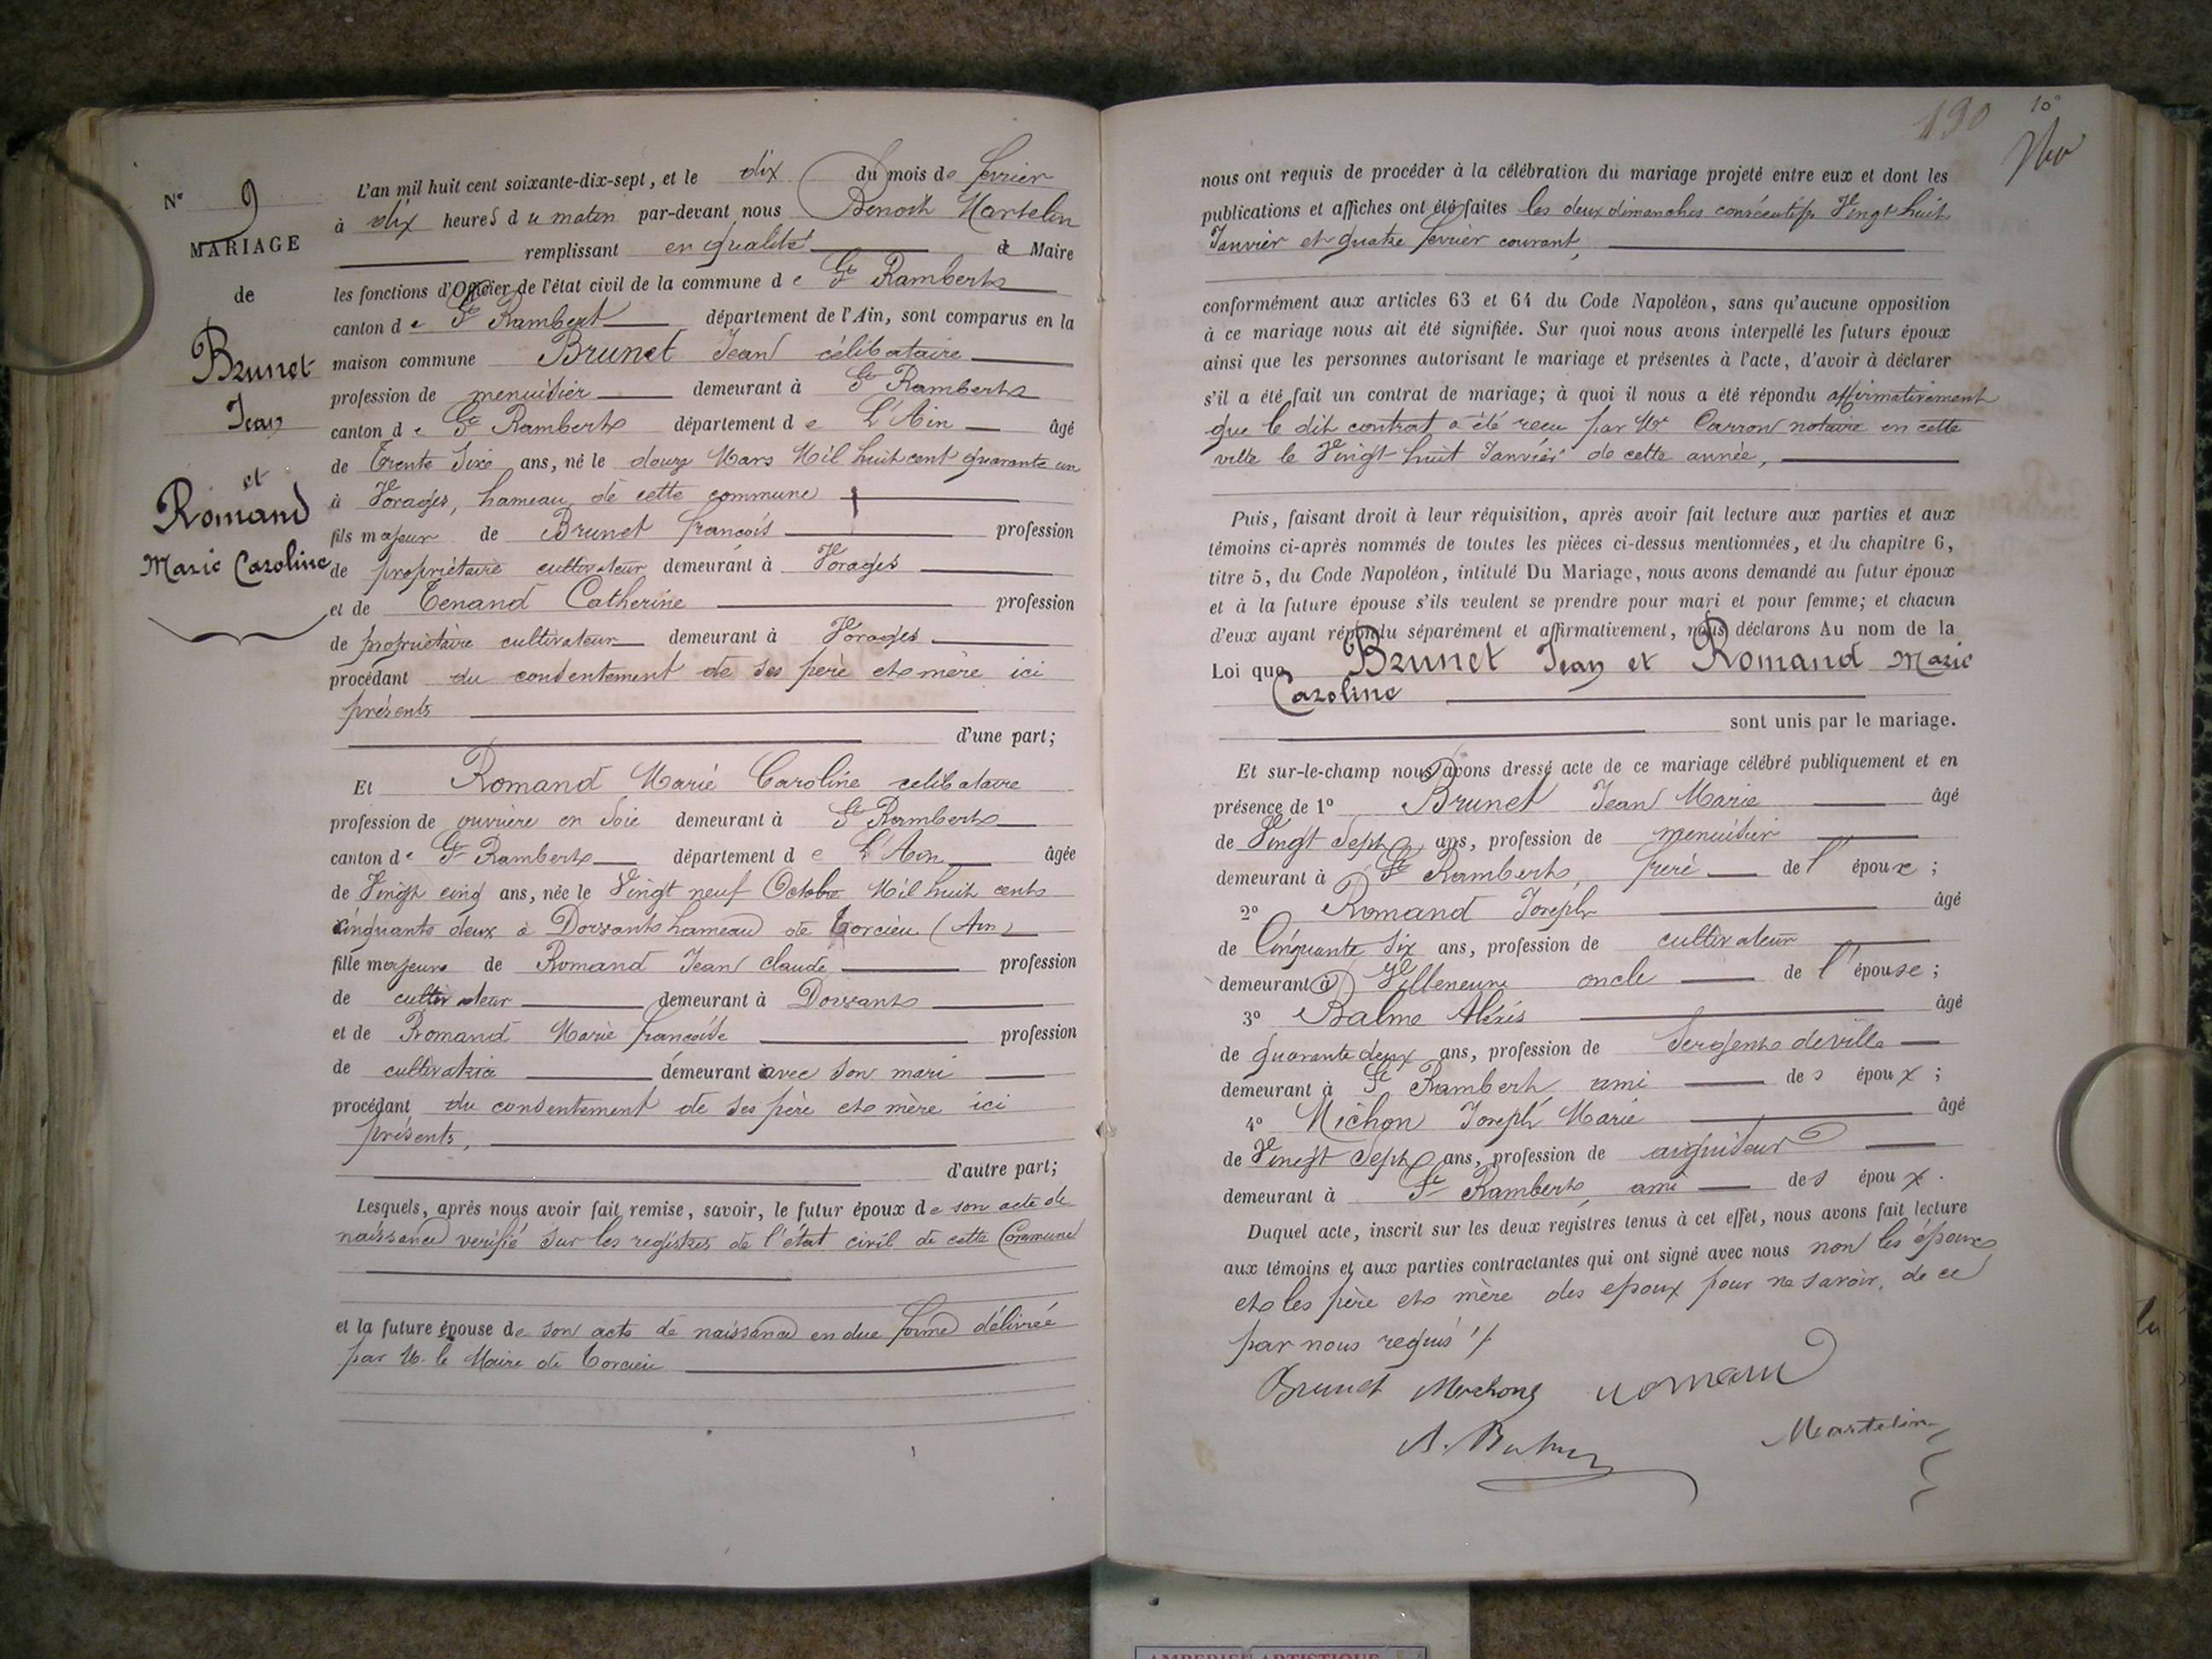 N° 9
MARIAGE
de
Brunet
Jean
et
Romand
Marie Caroline
L'an mil huit cent soixante-dix-sept, et le dix du mois de fevrier
à dix heures du matin par-devant nous Benoit Martelin
remplissant en qualité de Maire
les fonctions d'Officier de l'état civil de la commune de St Rambert
canton de St Rambert département de l'Ain, sont comparus en la
maison commune Brunet Jean célibataire
profession de menuisier demeurant à St Rambert
canton de St Rambert département de L'Ain âgé
de Trente Sixe ans, né le douze Mars Mil huit cent quarante un
à Vorages, hameau de cette commune
fils majeur de Brunet françois profession
de propriétaire cultivateur demeurant à Vorages
et de Tenand Catherine profession
de propriétaire cultivateur demeurant à Vorages
procédant du consentement de ses père et mère ici
présents
d'une part;
Et Romand Marie Caroline celibataire
profession de ouvrière en Soie demeurant à St Rambert
canton de St Rambert département de L'Ain âgée
de Vingt cinq ans, née le Vingt neuf Octobre Mil huit cent
cinquante deux à hameau de Torcieu (Ain)
fille majeure de Romand Jean Claude profession
de cultivateur demeurant à
et de Romand Marie françoise profession
de cultivatrice demeurant avec son mari
procédant du consentement de ses père et mère ici
présents,
d'autre part;
Lesquels, après nous avoir fait remise, savoir, le futur époux de son acte de
naissance verifié sur les registres de l'état civil de cette Commune
et la future épouse de son acte de naissance en due forme délivrée
par M. le Maire de Torcieu
190
10°
nous ont requis de procéder à la célébration du mariage projeté entre eux et dont les
publications et affiches ont été faites les deux dimanches consécutifs Vingt huit
Janvier et quatre fevrier courant,
conformément aux articles 63 et 64 du Code Napoléon, sans qu'aucune opposition
à ce mariage nous ait été signifiée. Sur quoi nous avons interpellé les futurs époux
ainsi que les personnes autorisant le mariage et présentes à l'acte, d'avoir à déclarer
s'il a été fait un contrat de mariage; à quoi il nous a été répondu affirmativement
que le dit contrat a été recu par Me Carron notaire en cette
ville le Vingt huit Janvier de cette année,
Puis, faisant droit à leur réquisition, après avoir fait lecture aux parties et aux
témoins ci-après nommés de toutes les pièces ci-dessus mentionnées, et du chapitre 6,
titre 5, du Code Napoléon, intitulé Du Mariage, nous avons demandé au futur époux
et à la future épouse s'ils veulent se prendre pour mari et pour femme; et chacun
d'eux ayant répondu séparément et affirmativement, nous déclarons Au nom de la
Loi que Brunet Jean et Romand Marie
Caroline
sont unis par le mariage.
Et sur-le-champ nous avons dressé acte de ce mariage célébré publiquement et en
présence de 1° Brunet Jean Marie âgé
de Vingt Sept ans, profession de menuisier
demeurant à St Rambert, frère de l'époux;
2° Romand Joseph âgé
de Cinquante Six ans, profession de cultivateur
demeurant à Villeneuve oncle de l'épouse;
3° Balme Alexis âgé
de quarante deux ans, profession de Sergent de ville
demeurant à St Rambert, ami des époux;
4° Michon Joseph Marie âgé
de Vingt Sept ans, profession de aiguiseur
demeurant à St Rambert, ami des époux.
Duquel acte, inscrit sur les deux registres tenus à cet effet, nous avons fait lecture
aux témoins et aux parties contractantes qui ont signé avec nous non les époux
et les père et mère des epoux pour ne savoir, de ce
par nous requis
Brunet Michon Romand
Martelin